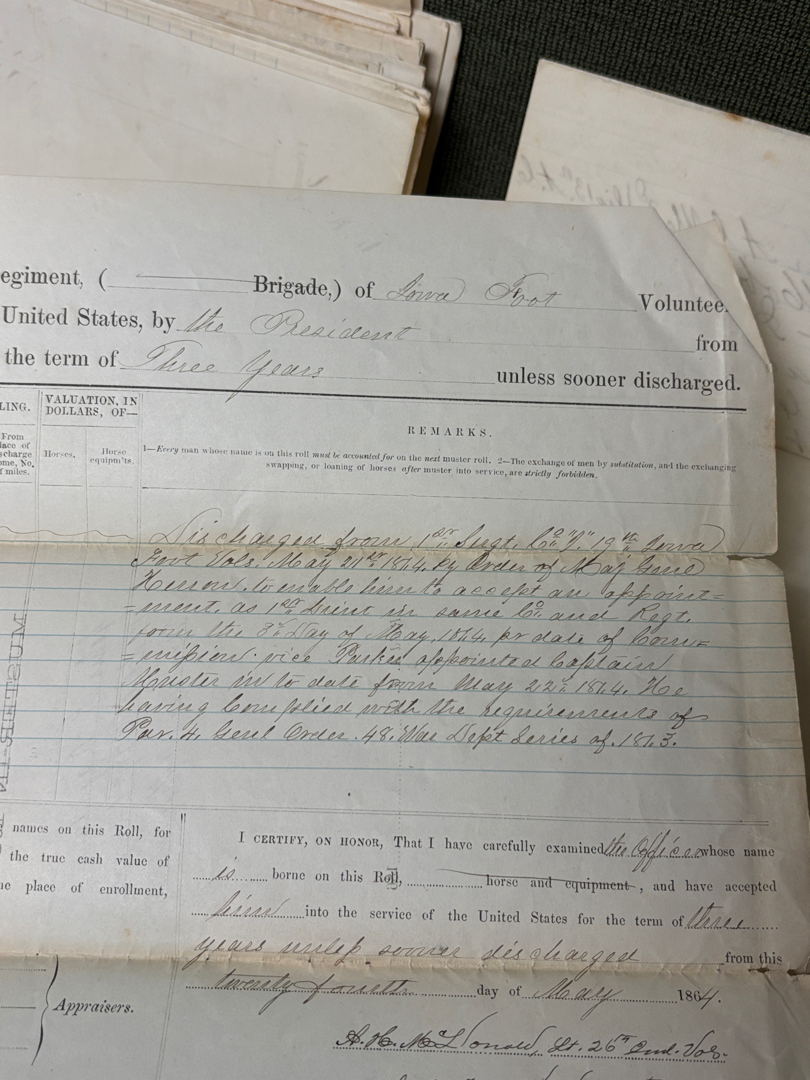 egiment, ( Brigade,) of Iowa Foot Voluntee
United States, by the President from
the term of Three Years unless sooner discharged.
LING.
VALUATION, IN DOLLARS, OF—
From
lace of
scharge
ome, No.
f miles.
Horses.
Horse equipm'ts.
REMARKS.
1—Every man whose name is on this roll must be accounted for on the next muster roll. 2—The exchange of men by substitution, and the exchanging
swapping, or loaning of horses after muster into service, are strictly forbidden.
Discharged from 1st Sergt. Co "I" 19th Iowa
Foot Vols. May 21st 1864. by Order of Maj Genl
Herron. to enable him to accept an appoint=
=ment. as 1st Lieut in same Co. and Regt.
from the 3d Day of May. 1864 pr date of Com=
=mission. vice Parker appointed Captain
Muster in to date from May 22d 1864. He
having Complied with the requirements of
Par. 4. Genl Order. 48. War Dept Series of. 1863.
MUSTER-IN
names on this Roll, for
the true cash value of
e place of enrollment,
Appraisers.
I CERTIFY, ON HONOR, That I have carefully examined the Officer whose name
is borne on this Roll, horse and equipment, and have accepted
him into the service of the United States for the term of three
years unless sooner discharged from this
twenty fourth day of May 1864.
Lt. 26th Ind. Vols.